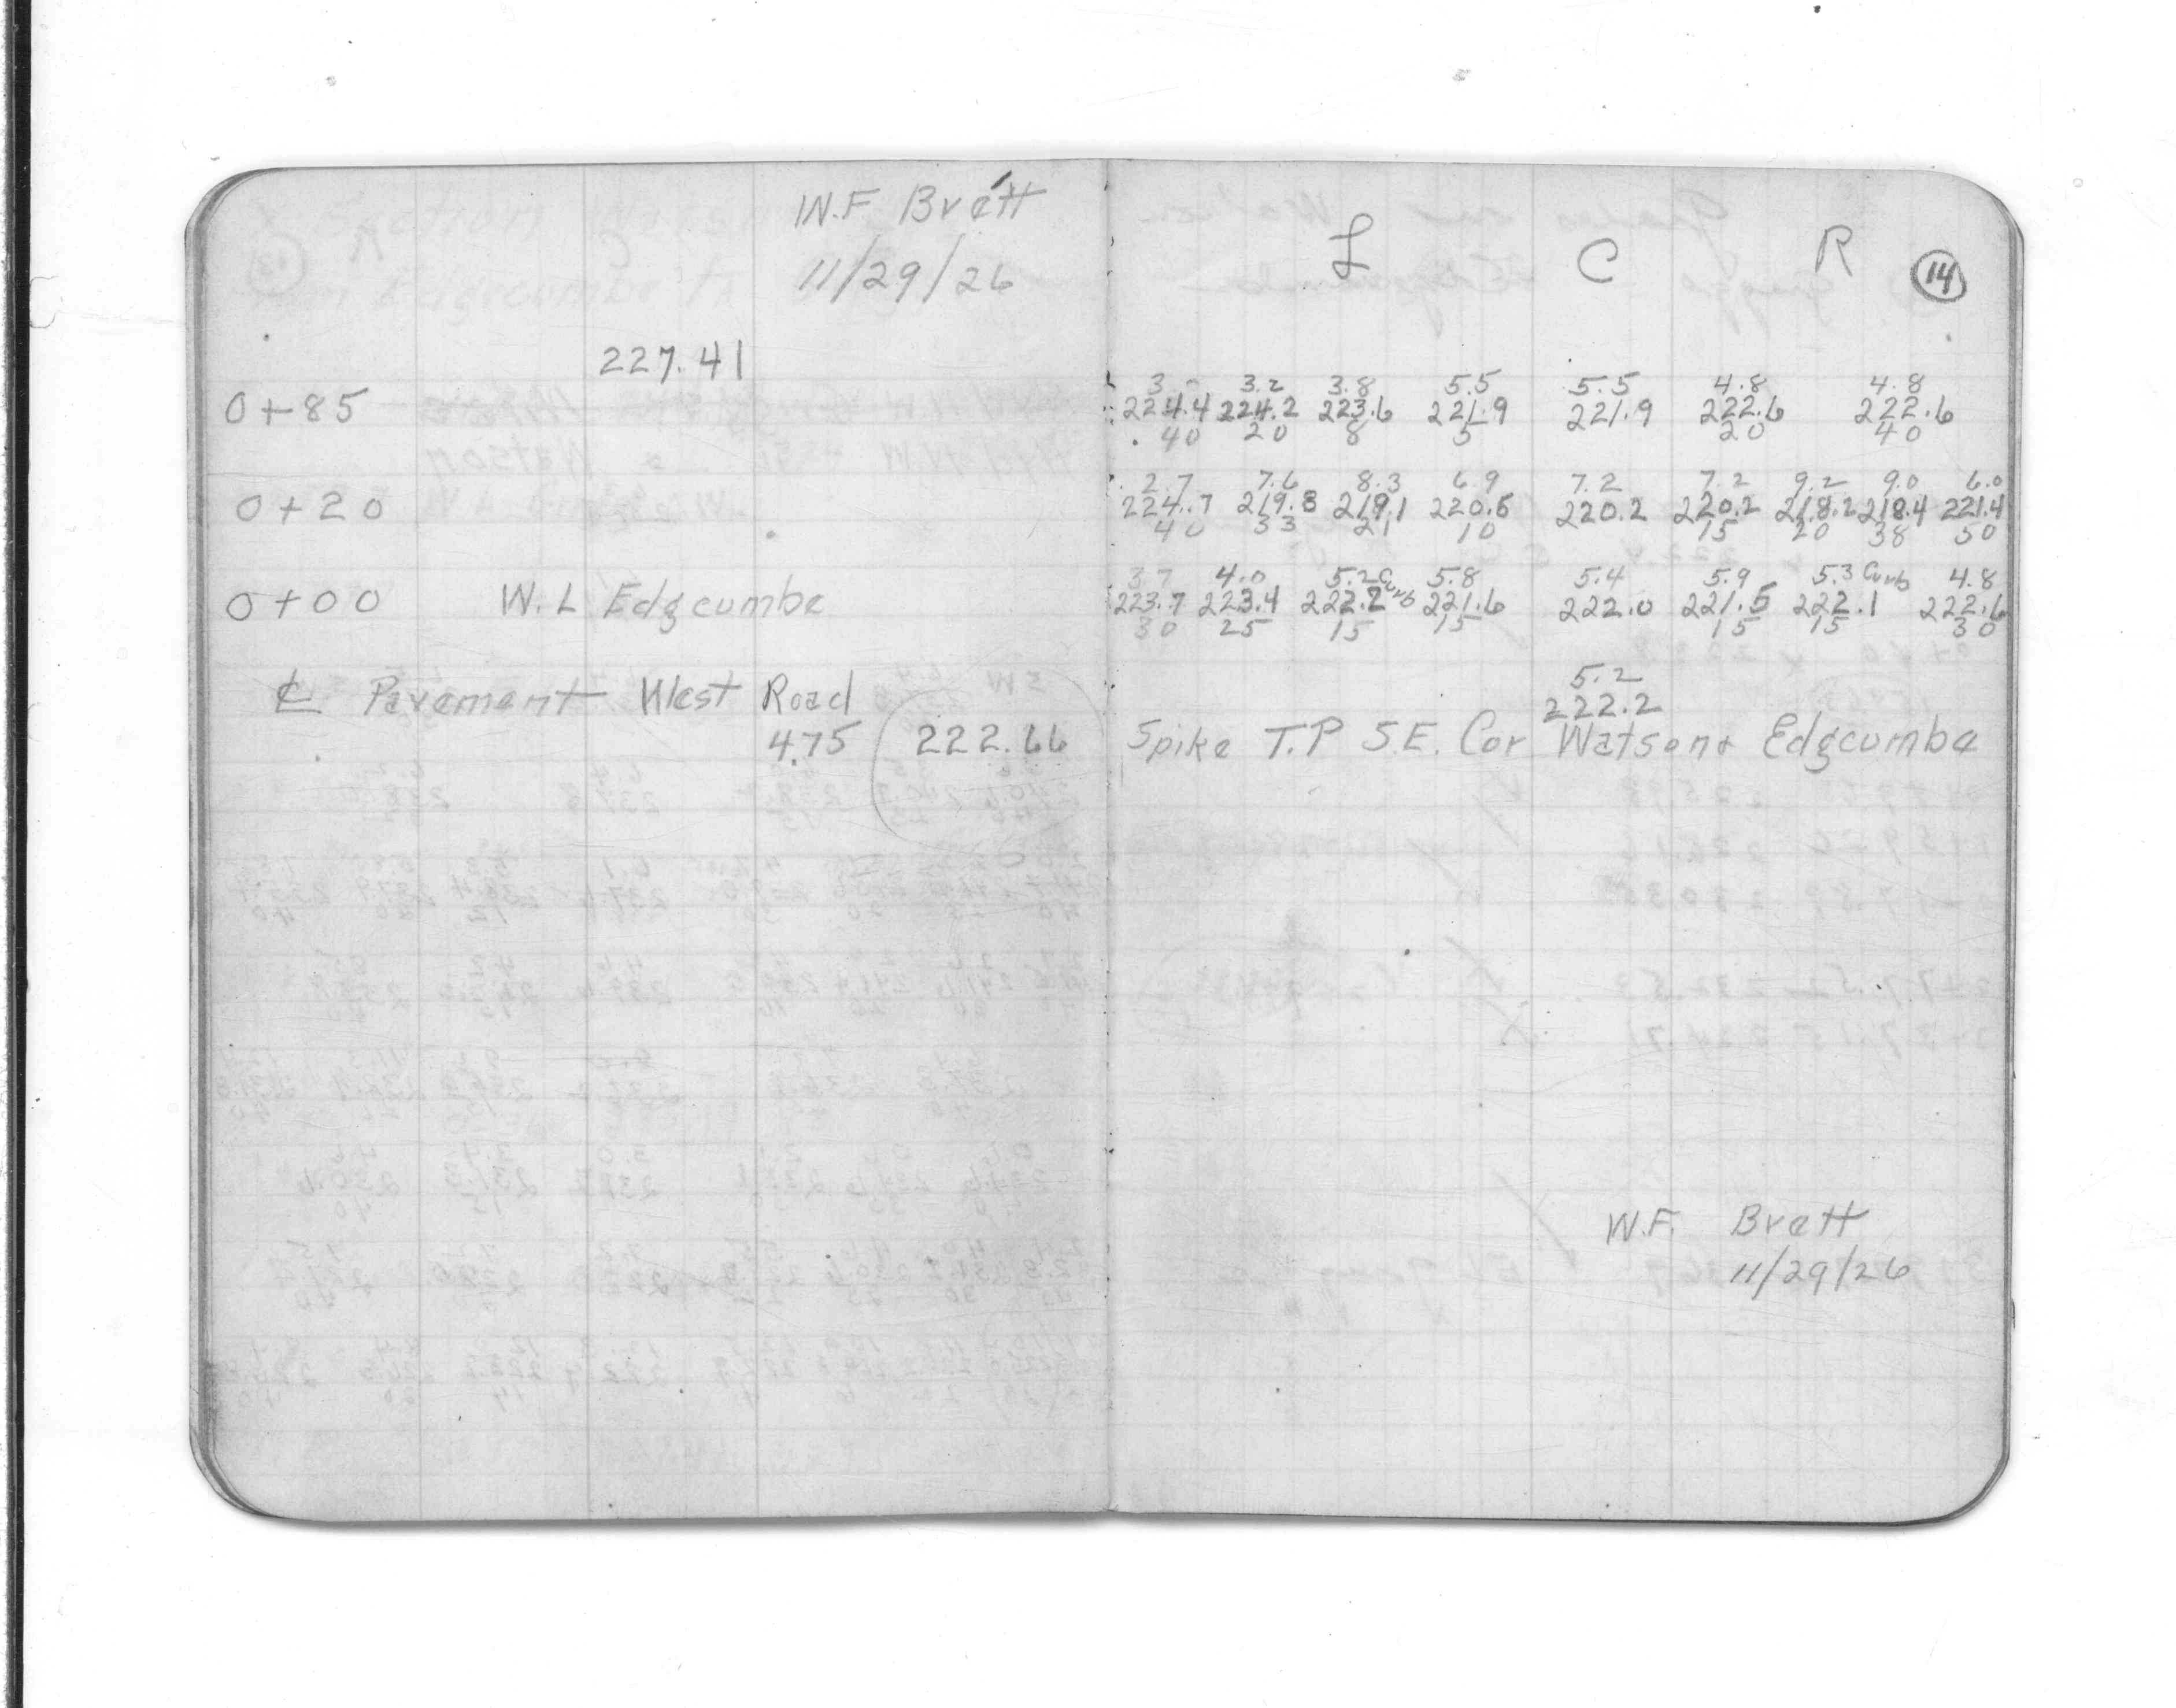 W.F Brett
11/29/26
227.41
0+85
0+20
0+00 W.L Edgcumbe
℄ Pavement West Road
4.75 222.66
L C R 14
3.2 3.8 5.5 5.5 4.8 4.8
224.4 224.2 223.6 221.9 221.9 222.6 222.6
40 20 8 5 20 40
2.7 7.6 8.3 6.9 7.2 7.2 9.2 9.0 6.0
224.7 219.8 219.1 220.5 220.2 220.2 218.2 218.4 221.4
40 33 21 10 15 20 38 50
3.7 4.0 5.2 Curb 5.8 5.4 5.9 5.3 Curb 4.8
223.7 223.4 222.2 221.6 222.0 221.5 222.1 222.6
30 25 15 15 15 15 30
5.2
222.2
Spike T.P S.E. Cor Watson + Edgcumbe
W.F. Brett
11/29/26